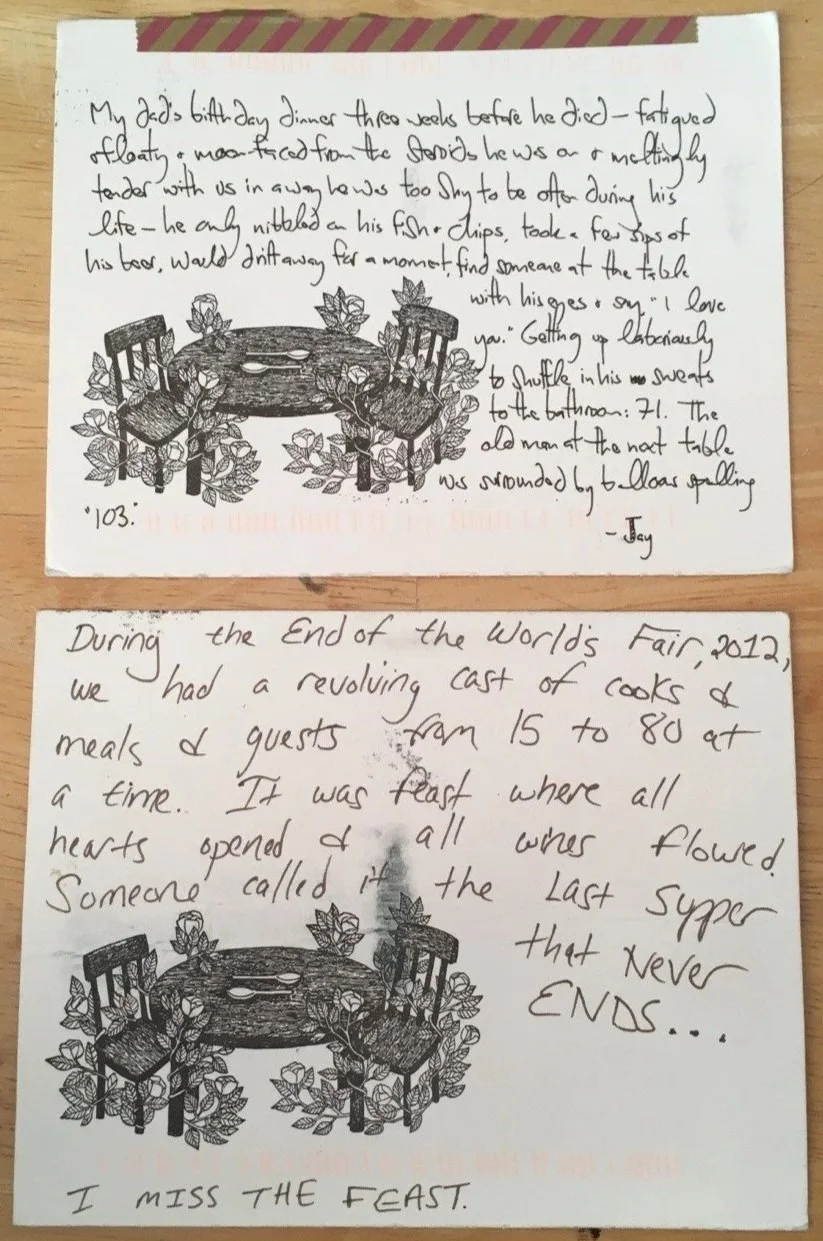 My dad's birthday dinner three weeks before he died – fatigued
& floaty & moon-faced from the steroids he was on & meltingly
tender with us in a way he was too shy to be often during his
life – he only nibbled on his fish & chips, took a few sips of
his beer, would drift away for a moment, find someone at the table
with his eyes & say, "I love
you." Getting up laboriously
to shuffle in his sweats
to the bathroom: 71. The
old man at the next table
was surrounded by balloons spelling
"103."
- Jay
During the End of the World's Fair, 2012,
we had a revolving cast of cooks &
meals & guests from 15 to 80 at
a time. It was feast where all
hearts opened & all wines flowed.
Someone called it the Last Supper
that Never
ENDS...
I MISS THE FEAST.